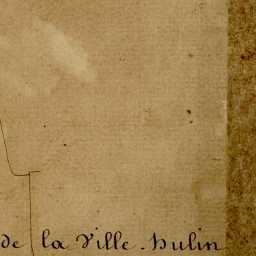 de la Ville-hulin